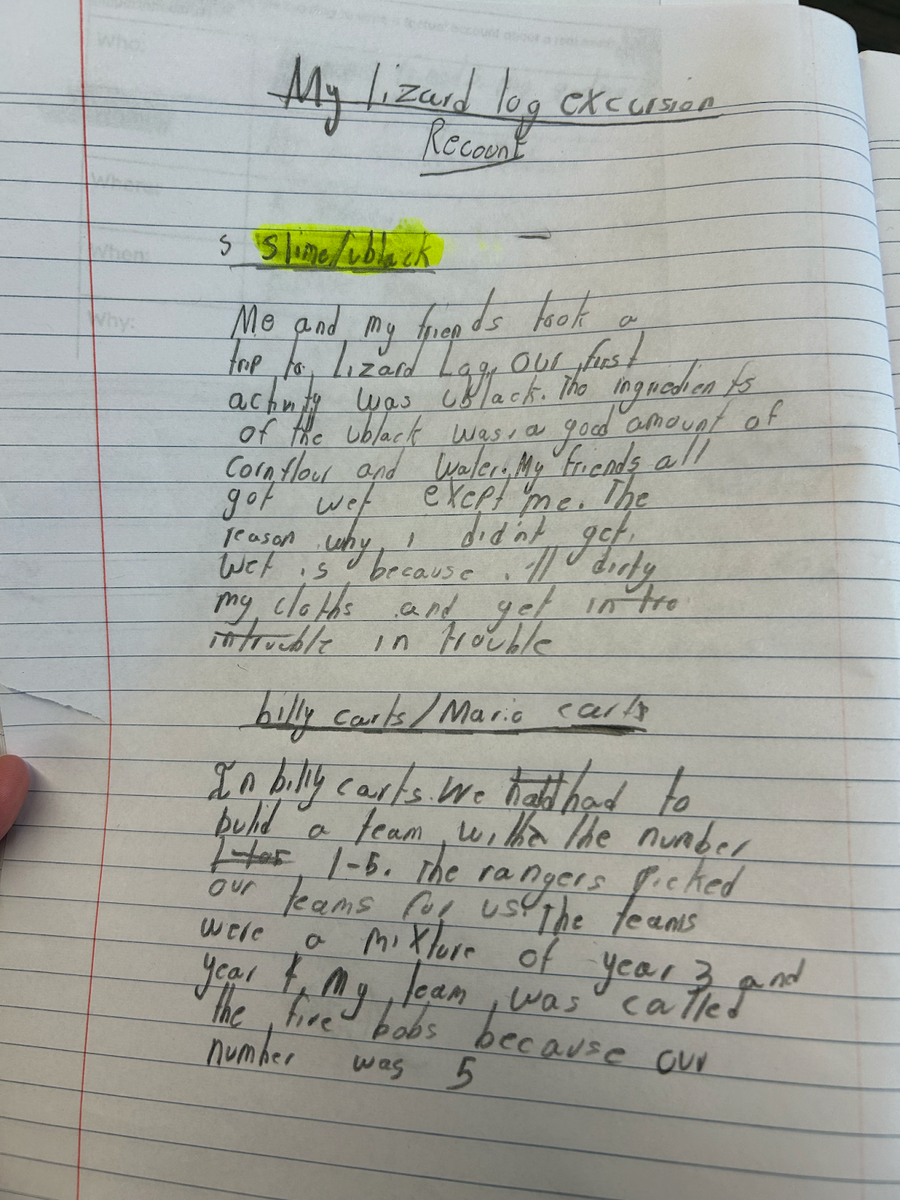 My lizard log excursion
Recount
s slime/ublack
Me and my friends took a
trip to, lizard Log, our first
activity was ublack. The ingredients
of the ublack was, a good amount of
cornflour and water. My friends all
got wet exept me. The
reason why i did'nt get,
wet is because i'll dirty
my cloths and get in tro
intrucble in trouble
billy carts/Mario carts
In billy carts. We hadd had to
bulid a team, with the number
1 to5, 1-5. The rangers picked
our teams for us. The teams
were a mixture of year 3 and
year 4. My, team, was called
the, five bobs because our
number was 5
Who:
Where:
When:
Why: